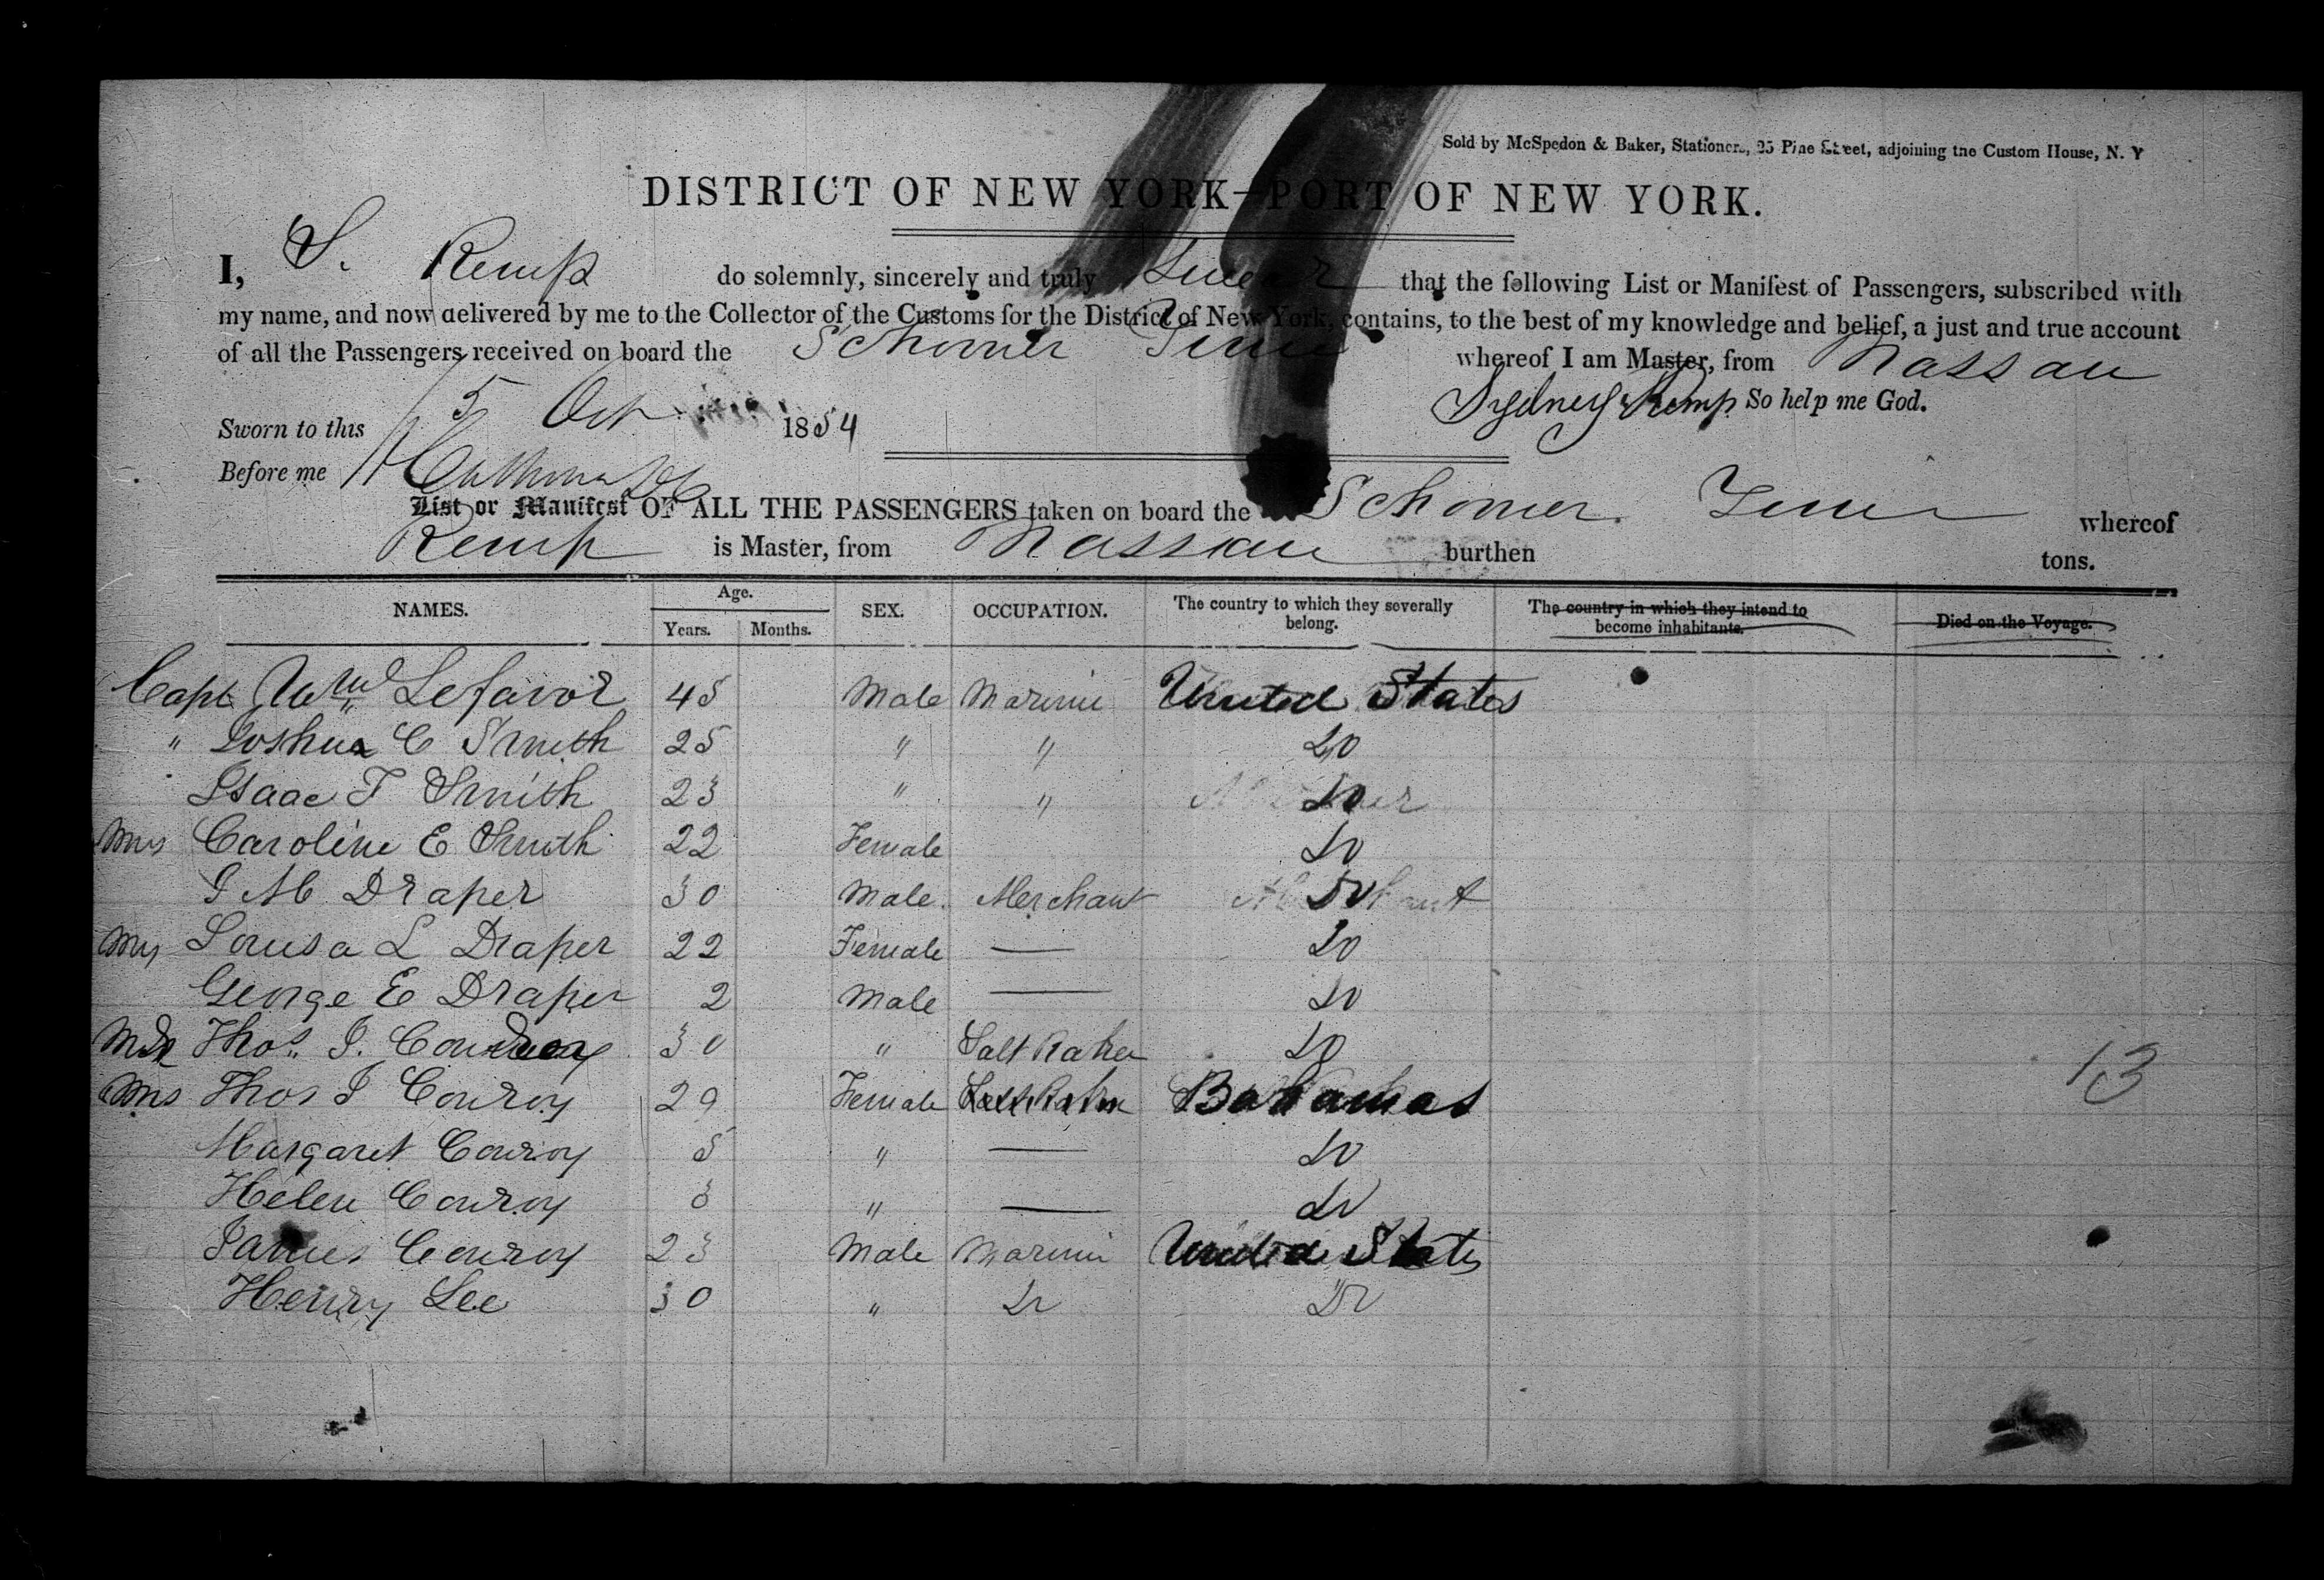 Sold by McSpedon & Baker, Stationers, 25 Pine Street, adjoining the Custom House, N. Y
DISTRICT OF NEW YORK—PORT OF NEW YORK.
I, S. Kemp do solemnly, sincerely and truly Swear that the following List or Manifest of Passengers, subscribed with
my name, and now delivered by me to the Collector of the Customs for the District of New York, contains, to the best of my knowledge and belief, a just and true account
of all the Passengers received on board the Schooner whereof I am Master, from Nassau
Sydney Kemp So help me God.
Sworn to this 5 Oct 1854
Before me
List or Manifest OF ALL THE PASSENGERS taken on board the Schooner whereof
Kemp is Master, from Nassau burthen tons.
NAMES. Age. Years. Months. SEX. OCCUPATION. The country to which they severally belong. The country in which they intend to become inhabitants. Died on the Voyage.
Capt Wm Lefavor 45 Male Marine United States
" Joshua C Smith 25 " " Do
Isaac T Smith 23 " " Do
Mrs Caroline E Smith 22 Female Do
J M Draper 30 Male. Merchant Do
Mrs Louisa L Draper 22 Female — Do
George E Draper 2 Male — Do
Thos. J. Conroy 30 " Salt Raker Do
Mrs Thos J Conroy 29 Female Salt Raker Bahamas
13
Margaret Conroy 5 " — Do
Helen Conroy 3 " — Do
James Conroy 23 Male Marine United States
Henry Lee 30 " Do Do